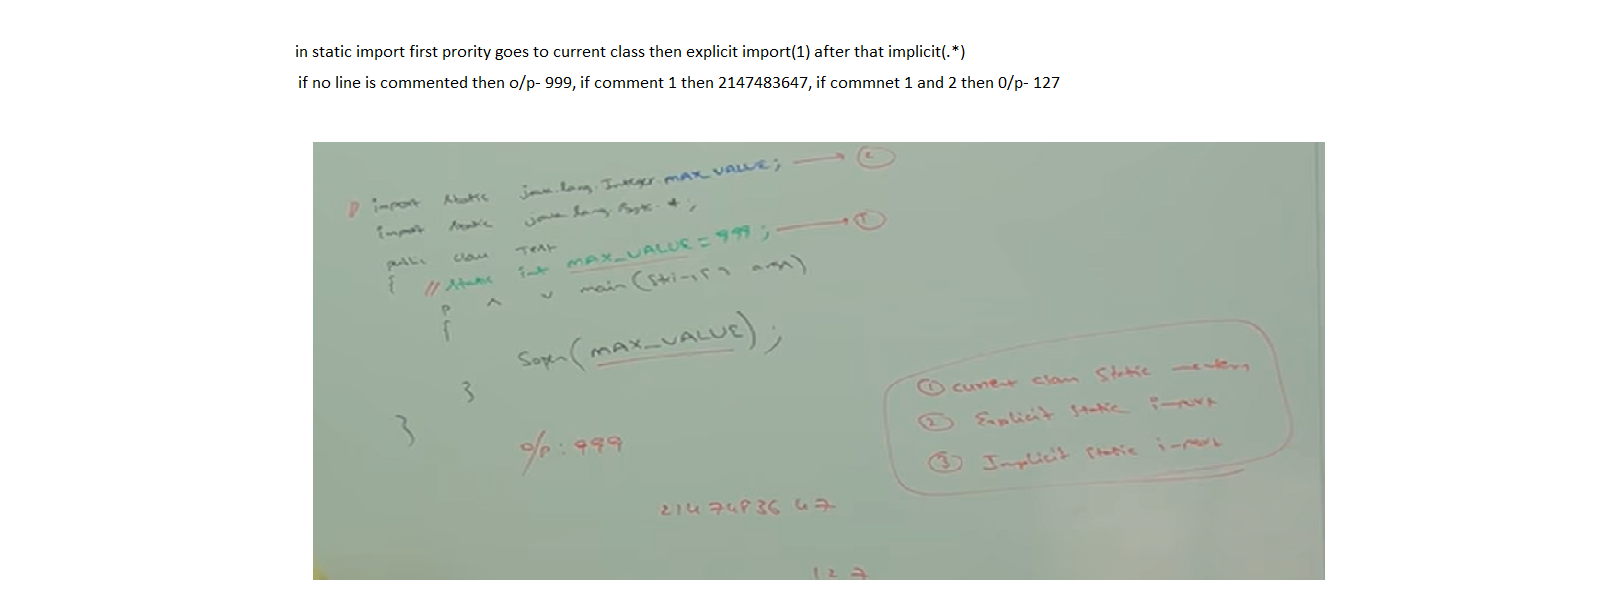 in static import first prority goes to current class then explicit import(1) after that implicit(.*)
if no line is commented then o/p- 999, if comment 1 then 2147483647, if commnet 1 and 2 then 0/p- 127
import static java.lang.Integer.MAX_VALUE; → 2
import static java.lang.Byte.*;
public class Test
{ // static int MAX_VALUE = 999; → 1
P ^ v main(String[] args)
{
Sopln(MAX_VALUE);
}
}
o/p: 999
2147483647
127
① current class static members
② Explicit static import
③ Implicit static import